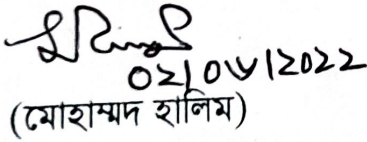 02/06/2022
(মোহাম্মদ হালিম)